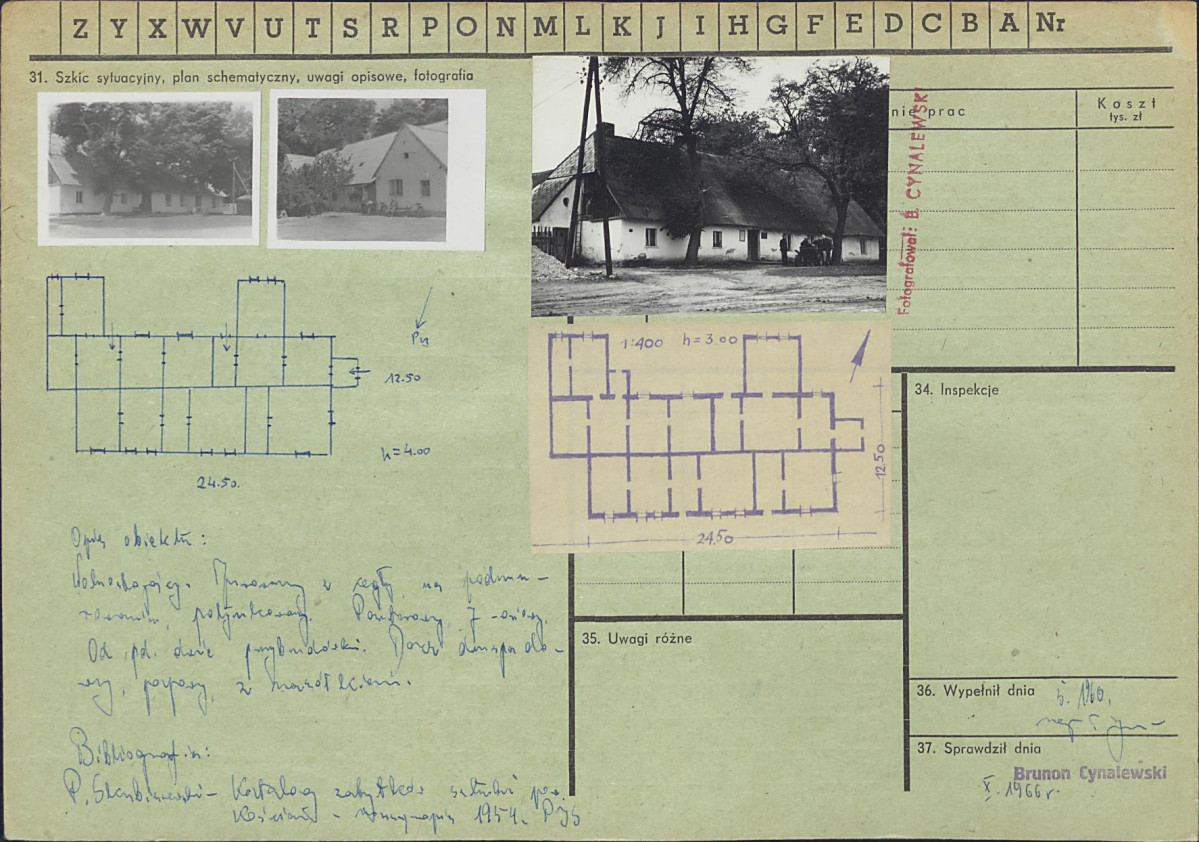 Z Y X W V U T S R P O N M L K J I H G F E D C B A Nr
31. Szkic sytuacyjny, plan schematyczny, uwagi opisowe, fotografia
nie prac
Koszt
tys. zł
Fotografował: B. CYNALEWSKI
12.50
h=4.00
24.50.
1:400 h=3.00
12.50
24.50
Opis obiektu:
Wolnostojący. Murowany z cegły, na podmu-
rowaniu, potynkowany. Parterowy, 7-osiowy.
Od pd. dwie przybudówki. Dach dwuspado-
wy, z
Bibliografia:
P. Katalog zabytków sztuki pow.
Kościan - 1954.
34. Inspekcje
35. Uwagi różne
36. Wypełnił dnia 5. 1960.
37. Sprawdził dnia
Brunon Cynalewski
X. 1966 r.